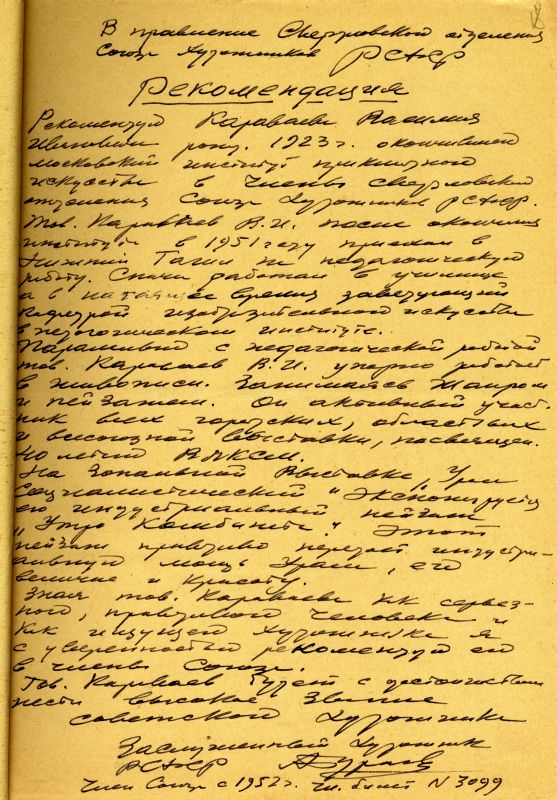 18
В правление Свердловской отделения
Союза Художников РСФСР
Рекомендация
Рекомендую Караваева Василия
Ивановича рожд. 1923 г. окончившего
московский институт прикладного
искусства в члены Свердловской
отделения Союза Художников РСФСР.
Тов. Караваев В.И. после окончания
института в 1951 году приехал в
Нижний Тагил на педагогическую
работу. Сначала работал в училище
а в настоящее время заведующий
кафедрой изобразительного искусства
в педагогическом институте.
Параллельно с педагогической работой
тов. Караваев В.И. упорно работает
в живописи. Занимаясь жанром
и пейзажем. Он активный участ-
ник всех городских, областных
и всесоюзной выставки, посвящен.
40 летию ВЛКСМ.
На Зональной Выставке „Урал
Социалистический" экспонируется
его индустриальный пейзаж
„Утро Комбината". Этот
пейзаж правдиво передает индустри-
альную мощь Урала, его
величие и красоту.
Зная тов. Караваева как серьез-
ного, правдивого человека и
как ищущего художника я
с уверенностью рекомендую его
в члены Союза.
Тов. Караваев будет с достоинством
нести высокое звание
советского художника
Заслуженный художник
РСФСР
Член Союза с 1952 г. Чл. билет N 3099